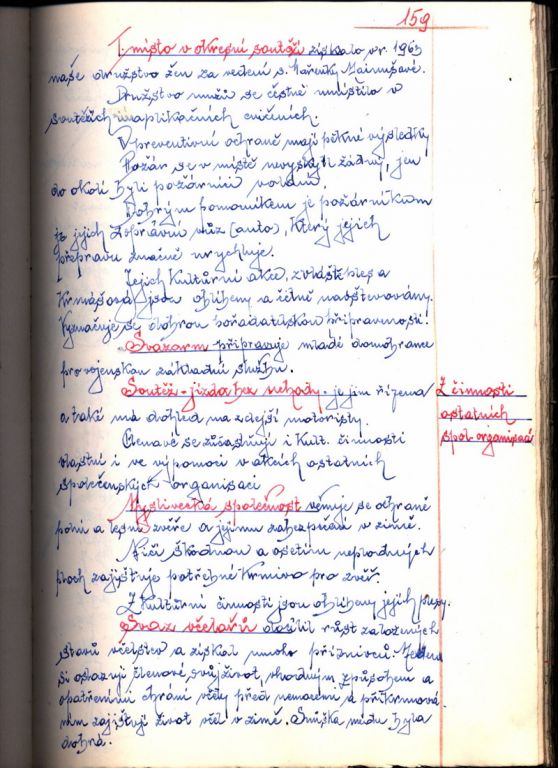 159
I. místo v okresní soutěži získalo v r. 1963
naše družstvo žen za vedení s. Mařenky
Družstvo mužů se čestně umístilo v
soutěžích cvičeních.
V preventivní ochraně mají pěkné výsledky
Požár se v místě nevyskytl žádný, jen
do okolí byli požárníci voláni.
Dobrým pomocníkem je požárníkům
je jejich dopravní vůz (auto), který jejich
přepravu značně urychluje.
Jejich kulturní akce, zvláště ples a
Krmášová jsou oblíbeny a četně navštěvovány.
Vyznačuje se dobrou pořadatelskou připraveností!
Svazarm připravuje mladé domobrance
pro vojenskou základní službu.
Soutěž - jízda bez nehody - je jim řízena
a také má dohled na zdejší motoristy.
Členové se zúčastňují i kult. činnosti
vlastní i ve výpomoci v akcích ostatních
společenských organisací
Z činnosti
ostatních
spol. organisací
Myslivecká společnost věnuje se ochraně
polní a lesní zvěře a jejímu zabezpečení v zimě.
Ničí škodnou a osetím neplodných
ploch zajišťuje potřebné krmivo pro zvěř.
Z kulturní činnosti jsou oblíbeny jejich plesy.
Svaz včelařů docílil růst založených
stavů včelstev a získal mnoho příznivců.
si osvojují členové svůj život, vhodným způsobem a
opatřeními chrání včely před nemocemi a přikrmová-
ním zajistují život včel v zimě. Snůška medu byla
dobrá.